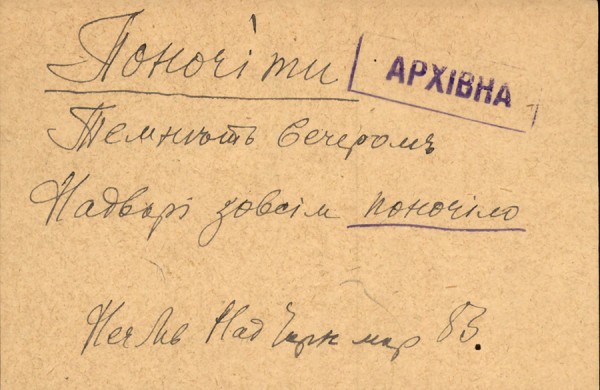 Поночіти
АРХІВНА
Темнѣть вечеромъ
Надворі зовсім поночіло
Неч Лев Над Чорн мор 83.